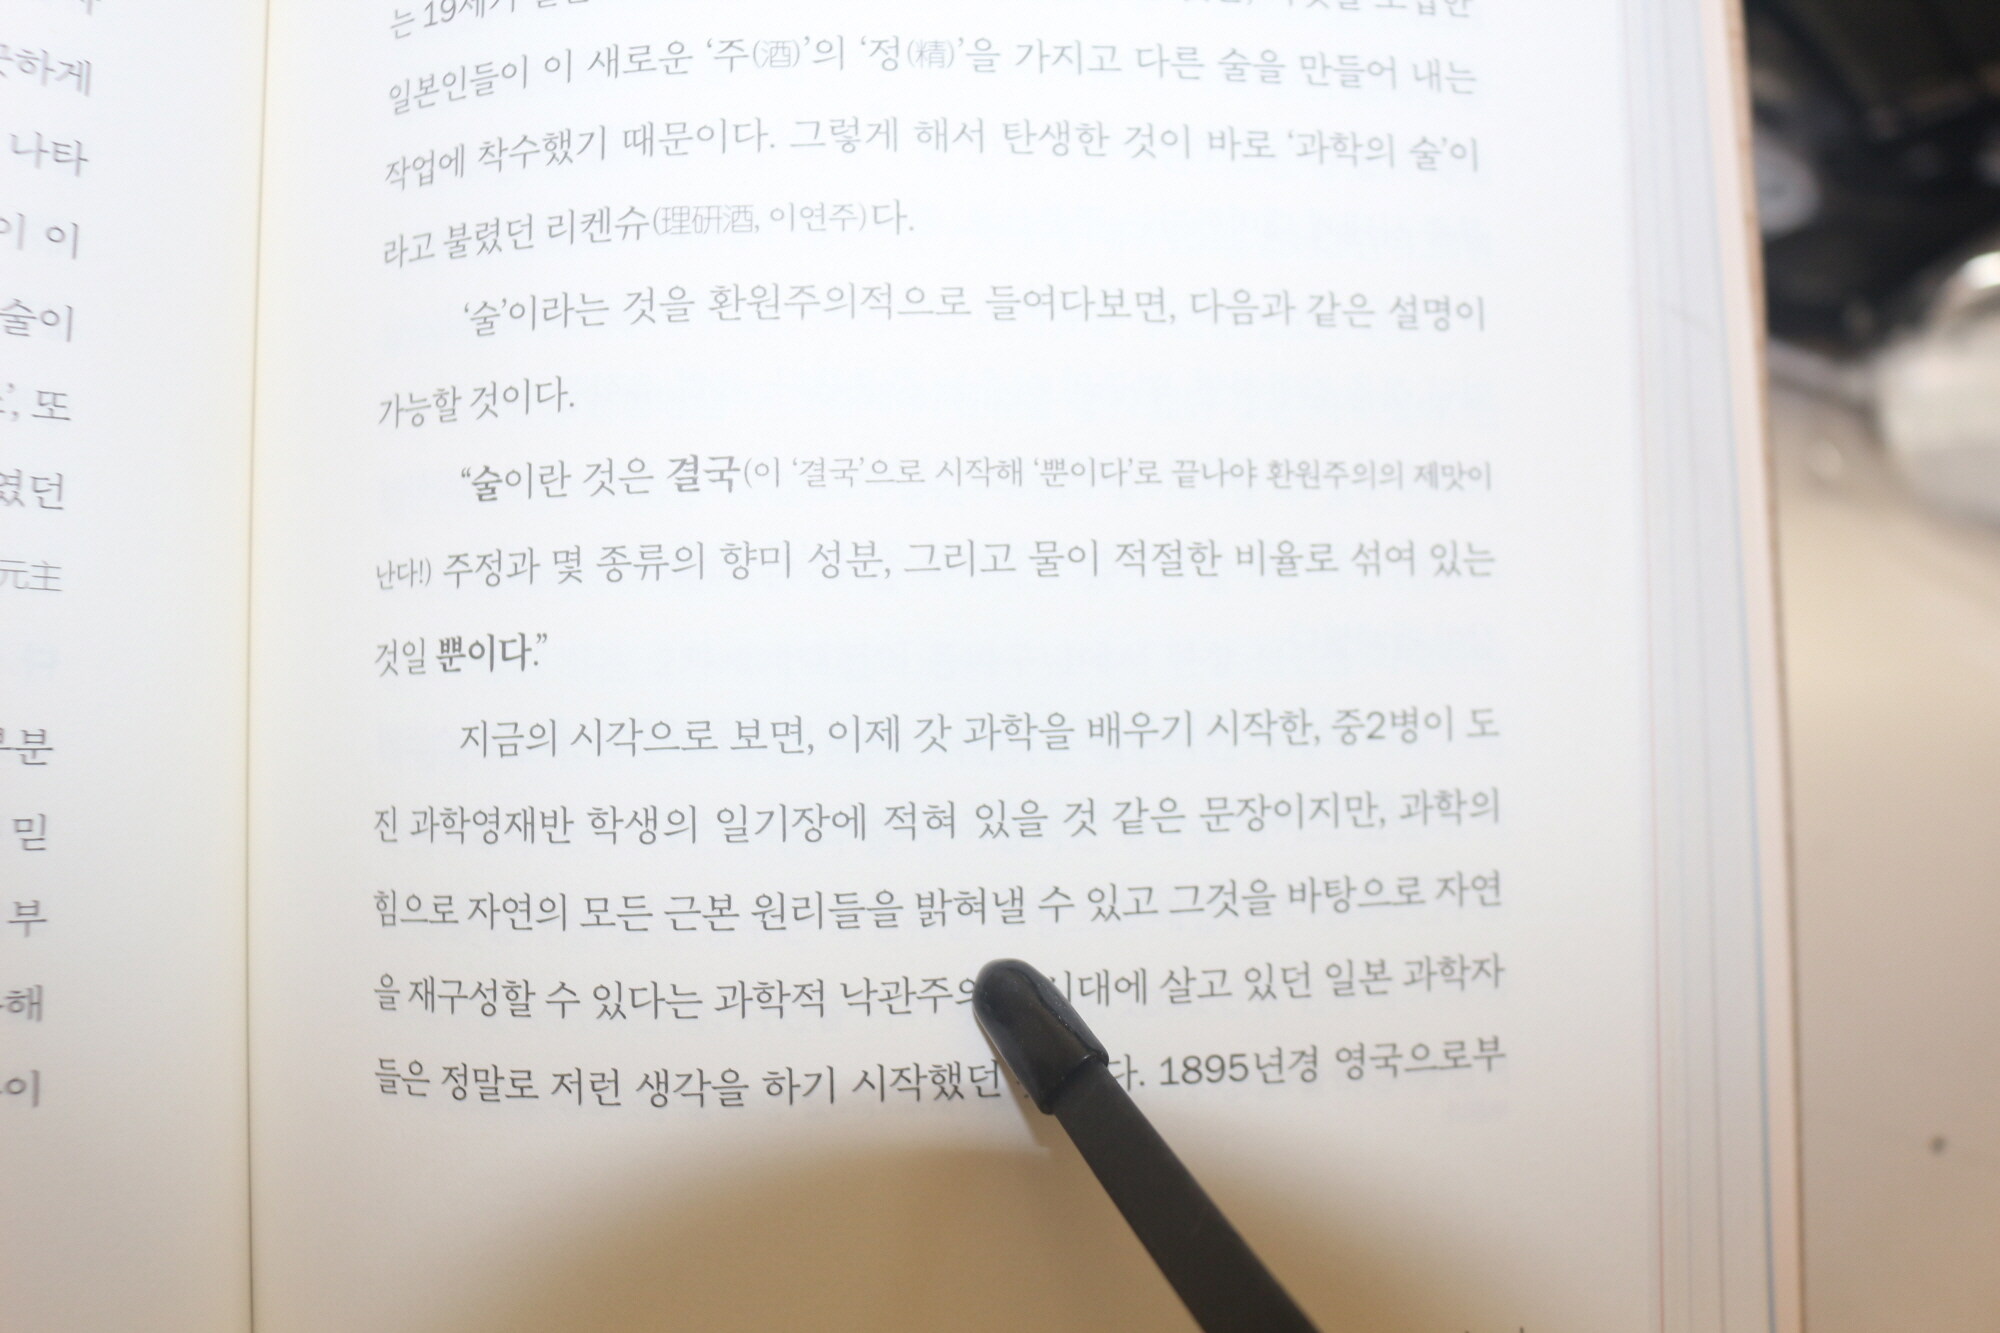 꿋하게
나타
이 이
술이
', 또
였던
元主
부분
믿
부
해
이
는 19세기
일본인들이 이 새로운 ‘주(酒)’의 ‘정(精)’을 가지고 다른 술을 만들어 내는
작업에 착수했기 때문이다. 그렇게 해서 탄생한 것이 바로 ‘과학의 술’이
라고 불렸던 리켄슈(理研酒, 이연주)다.
‘술’이라는 것을 환원주의적으로 들여다보면, 다음과 같은 설명이
가능할 것이다.
“술이란 것은 결국(이 ‘결국’으로 시작해 ‘뿐이다’로 끝나야 환원주의의 제맛이
난다!) 주정과 몇 종류의 향미 성분, 그리고 물이 적절한 비율로 섞여 있는
것일 뿐이다.”
지금의 시각으로 보면, 이제 갓 과학을 배우기 시작한, 중2병이 도
진 과학영재반 학생의 일기장에 적혀 있을 것 같은 문장이지만, 과학의
힘으로 자연의 모든 근본 원리들을 밝혀낼 수 있고 그것을 바탕으로 자연
을 재구성할 수 있다는 과학적 낙관주의 시대에 살고 있던 일본 과학자
들은 정말로 저런 생각을 하기 시작했던 다. 1895년경 영국으로부